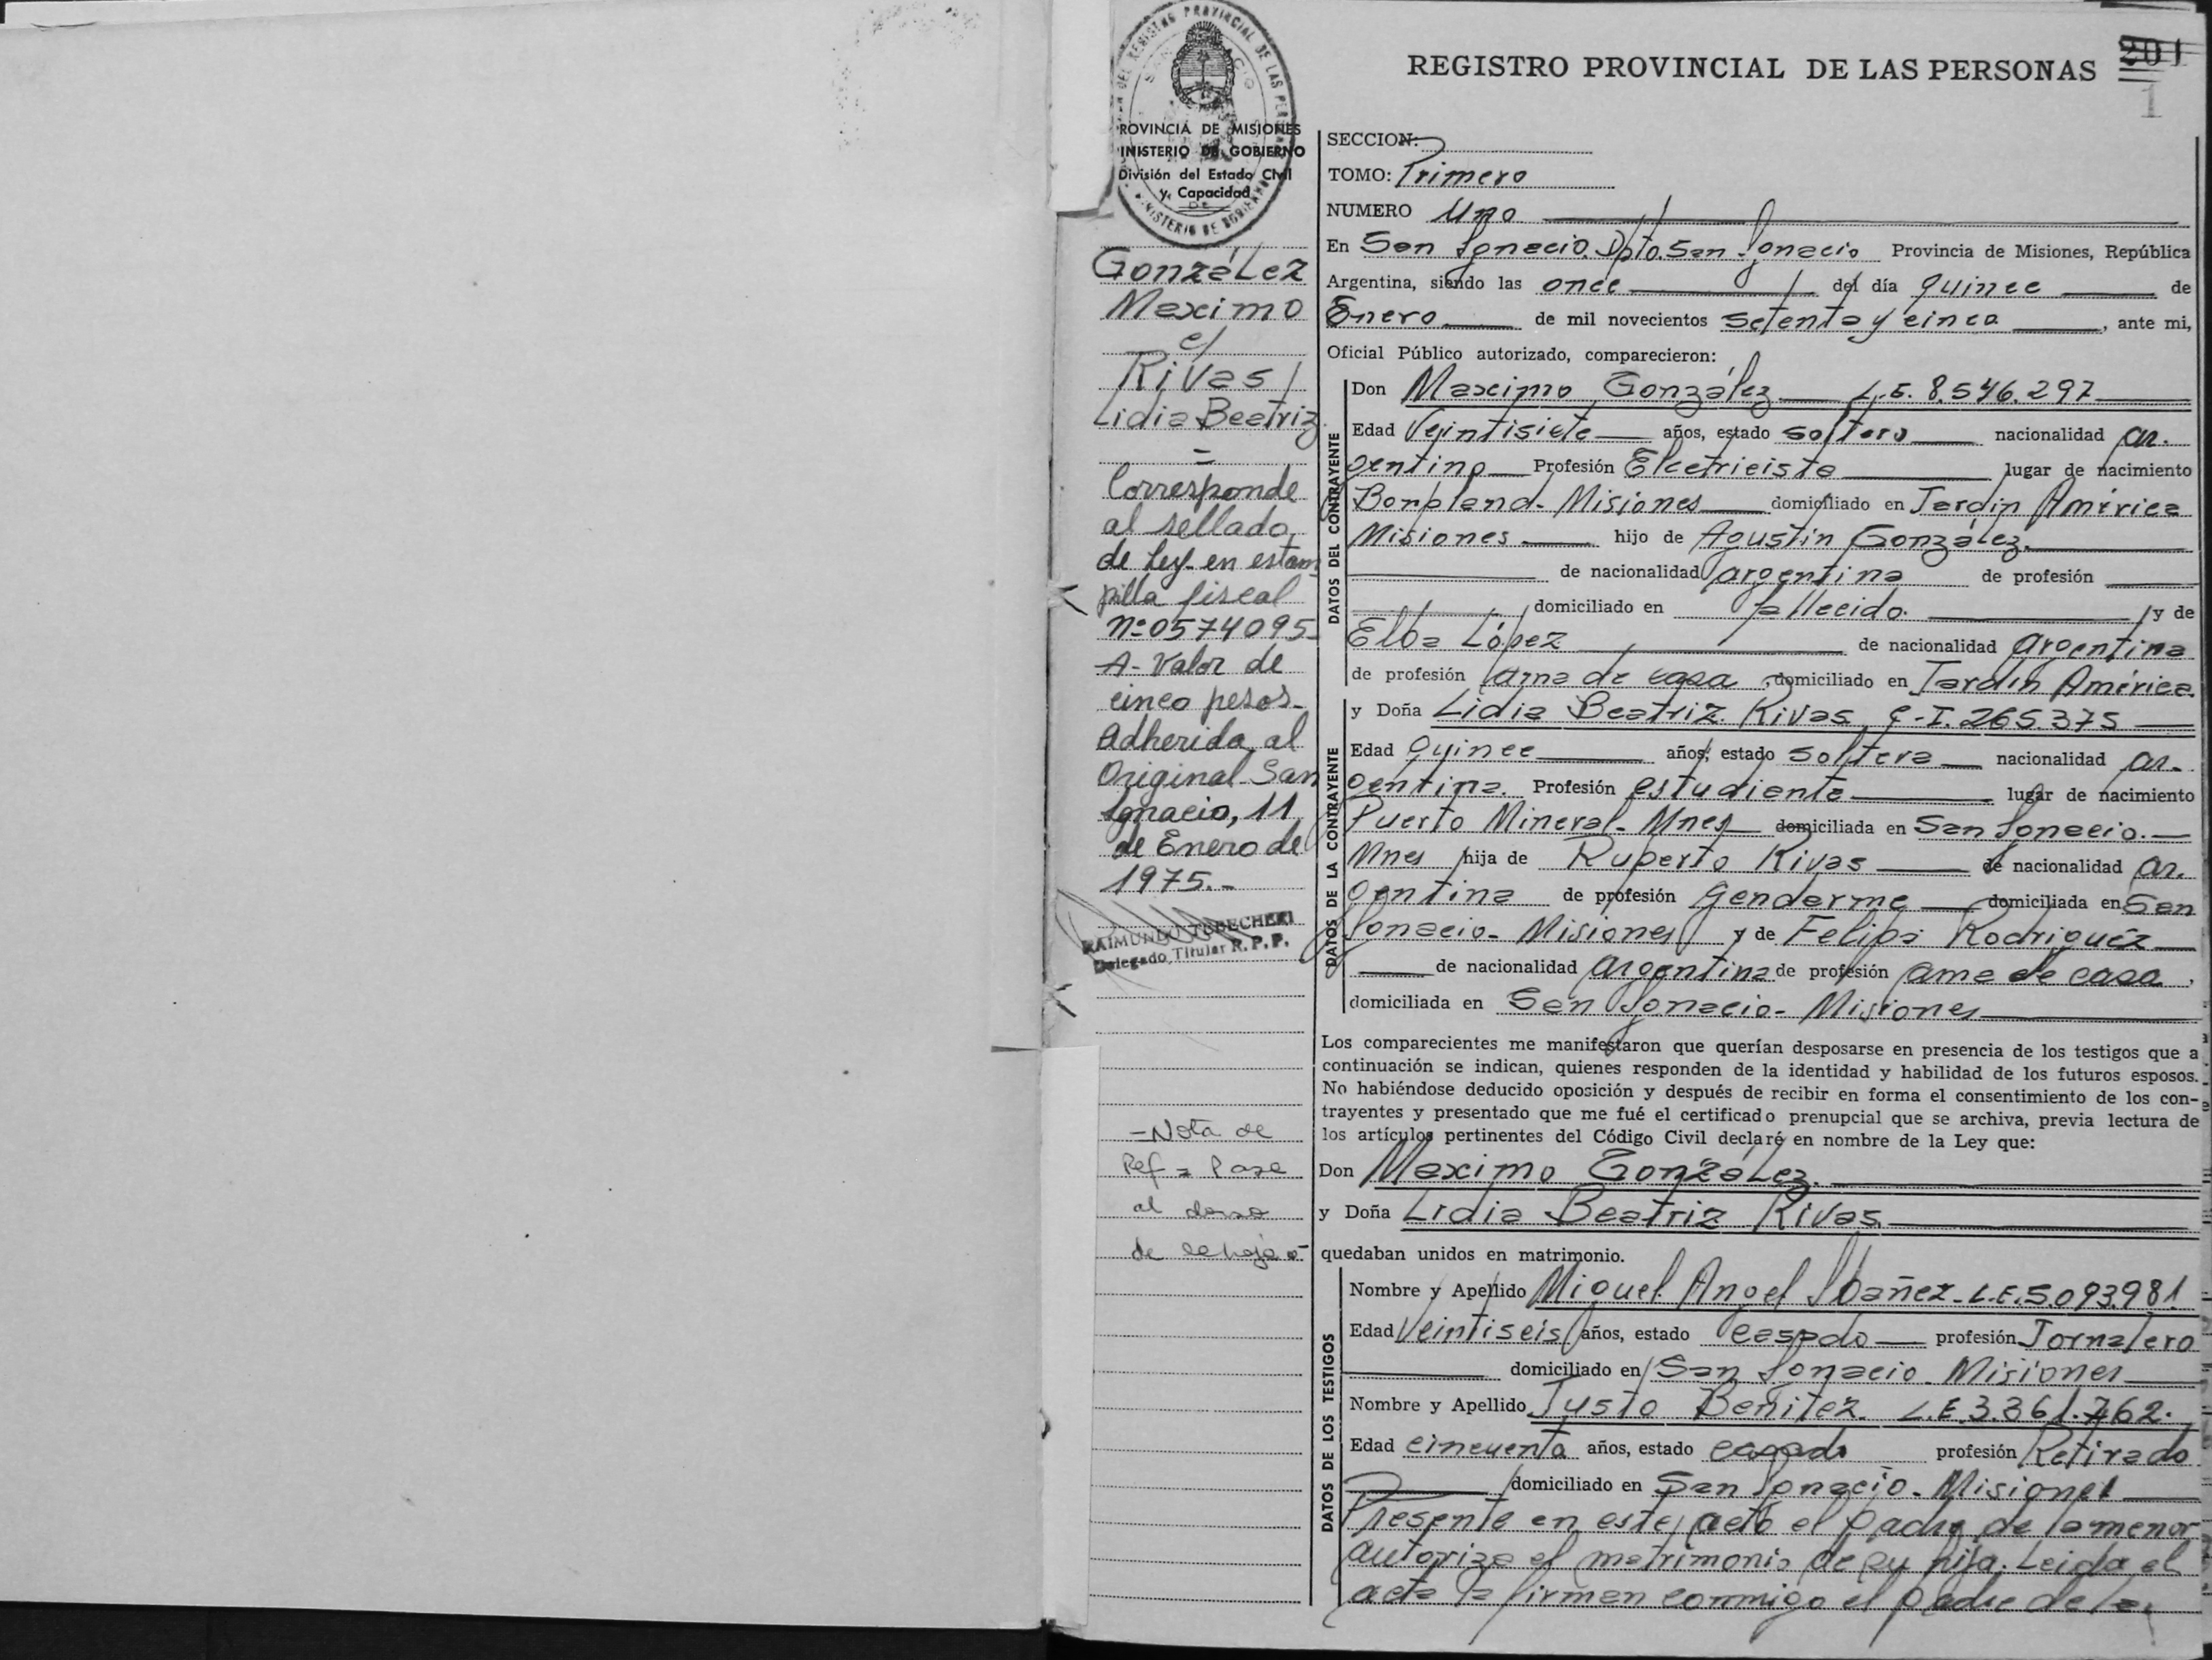 REGISTRO PROVINCIAL DE LAS PERSONAS
201
1
PROVINCIAL DE LAS
ROVINCIA DE MISIONES
INISTERIO DE GOBIERNO
División del Estado Civil
y Capacidad
MINISTERIO DE GOBIERNO
González
Maximo
c/
Rivas
Lidia Beatriz
=
Corresponde
al sellado
de Ley en estam
pilla fiscal
Nº 0574095
A- Valor de
cinco pesos-
Adherida al
Original San
Ignacio, 11
de Enero de
1975.-
RAIMUNDO
Delegado Titular R. P. P.
- Nota de
Ref = Pase
al dorso
de la hoja
SECCION:
TOMO: Primero
NUMERO Uno
En San Ignacio. Dpto. San Ignacio Provincia de Misiones, República
Argentina, siendo las once del día quince de
Enero de mil novecientos setenta y cinco, ante mi,
Oficial Público autorizado, comparecieron:
DATOS DEL CONTRAYENTE
Don Maximo González L.E. 8.546.297
Edad Veintisiete años, estado soltero nacionalidad ar-
gentino Profesión Electricista lugar de nacimiento
Bonpland- Misiones domiciliado en Jardín América
Misiones hijo de Agustín González.
de nacionalidad argentina de profesión
domiciliado en fallecido. y de
Elba López de nacionalidad argentina
de profesión ama de casa, domiciliado en Jardín América.
DATOS DE LA CONTRAYENTE
y Doña Lidia Beatriz Rivas C.I. 265.375
Edad Quince años, estado soltera nacionalidad ar-
gentina. Profesión estudiante lugar de nacimiento
Puerto Mineral- Mnes domiciliada en San Ignacio.
Mnes hija de Ruperto Rivas de nacionalidad ar-
gentina de profesión gendarme domiciliada en San
Ignacio- Misiones y de Felipa Rodriguéz
de nacionalidad argentina de profesión ama de casa,
domiciliada en San Ignacio- Misiones
Los comparecientes me manifestaron que querían desposarse en presencia de los testigos que a
continuación se indican, quienes responden de la identidad y habilidad de los futuros esposos.
No habiéndose deducido oposición y después de recibir en forma el consentimiento de los con-
trayentes y presentado que me fué el certificado prenupcial que se archiva, previa lectura de
los artículos pertinentes del Código Civil declaré en nombre de la Ley que:
Don Maximo González.
y Doña Lidia Beatriz Rivas
quedaban unidos en matrimonio.
DATOS DE LOS TESTIGOS
Nombre y Apellido Miguel Angel Ibañez- L.E. 5.093.981.
Edad Veintiseis años, estado casado profesión Jornalero
domiciliado en San Ignacio- Misiones
Nombre y Apellido Justo Beñitez L.E. 3.361.762.
Edad cincuenta años, estado casado profesión Retirado
domiciliado en San Ignacio- Misiones
Presente en este acto el padre de la menor
autoriza el matrimonio de su hija. Leida el
acta la firman conmigo el padre de la